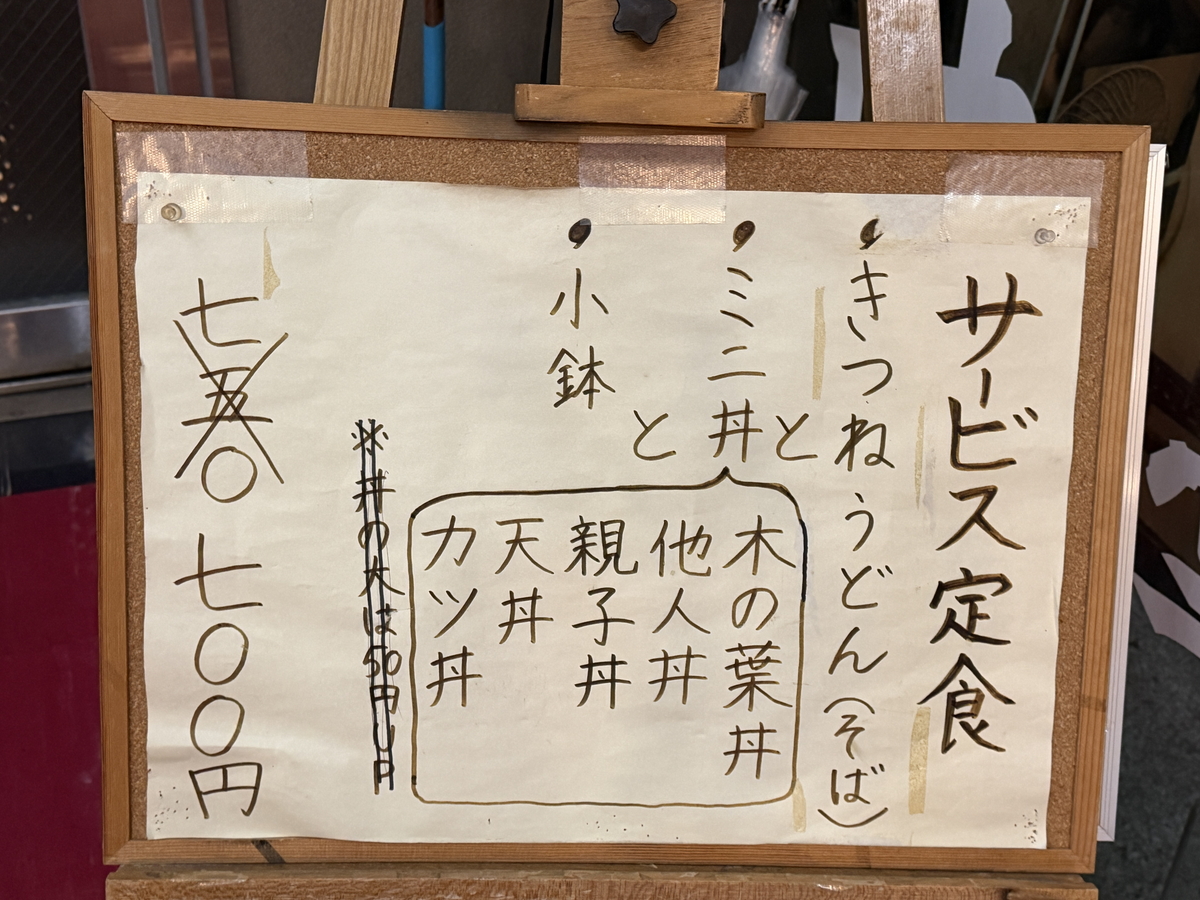 サービス定食
・きつねうどん(そば)
と
・ミニ丼
と
・小鉢
木の葉丼
他人丼
親子丼
天丼
カツ丼
※丼の大は50円UP
七五〇 七〇〇円